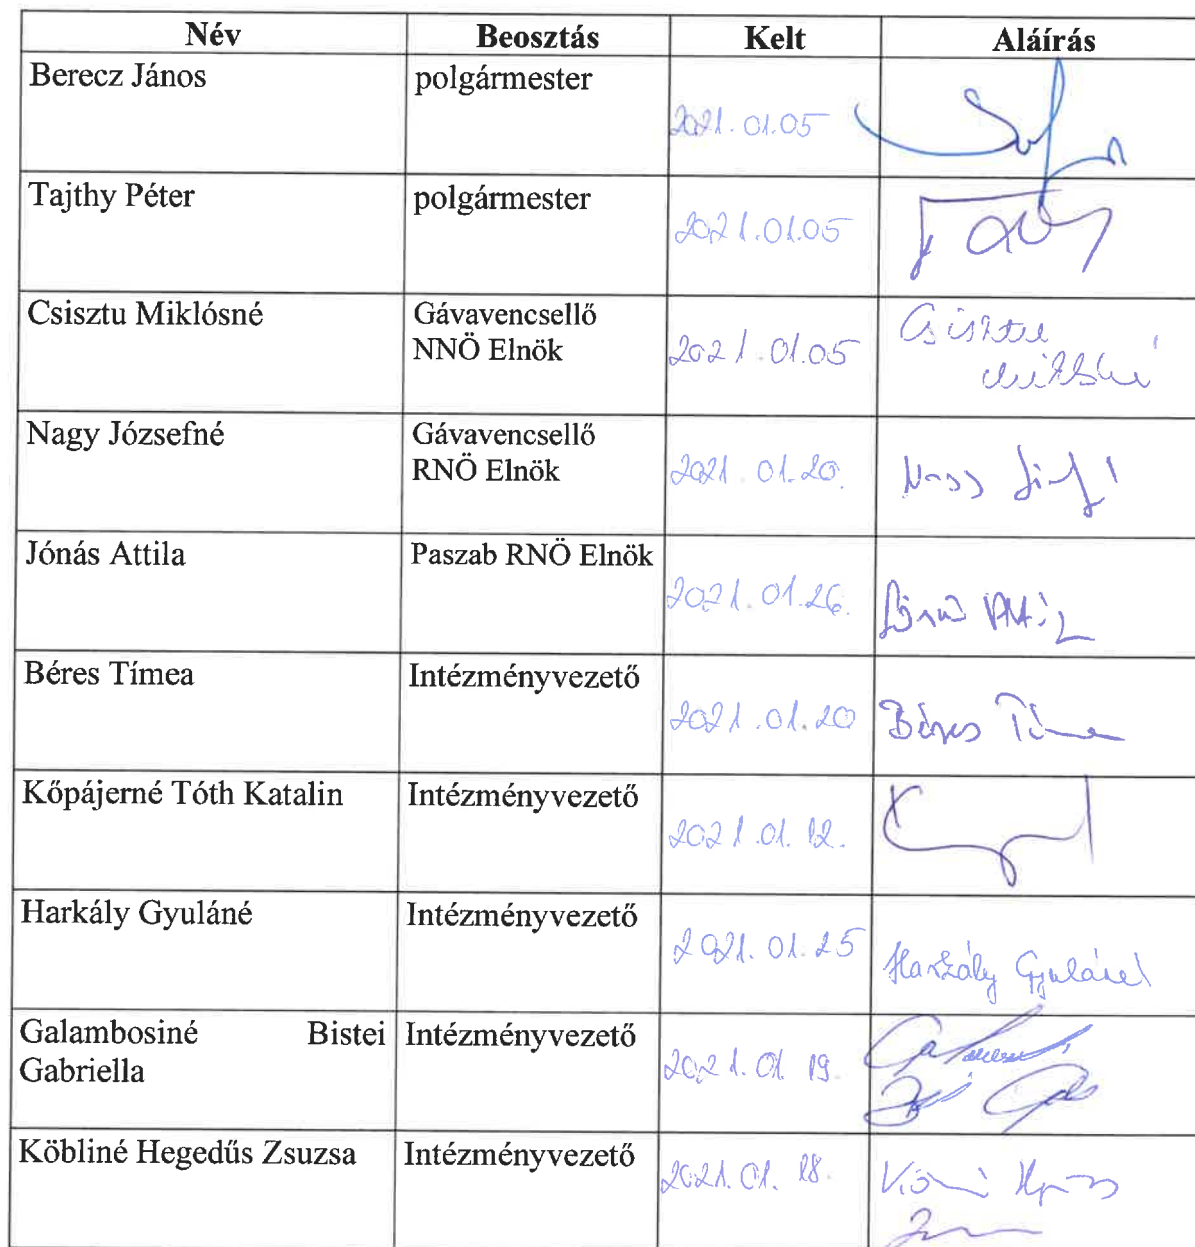 Név Beosztás Kelt Aláírás
Berecz János polgármester
2021.01.05
Tajthy Péter polgármester
2021.01.05
Csisztu Miklósné Gávavencsellő
NNÖ Elnök 2021.01.05 Csisztu
Miklósné
Nagy Józsefné Gávavencsellő
RNÖ Elnök 2021.01.20.
Jónás Attila Paszab RNÖ Elnök
2021.01.26. Jónás Attila
Béres Tímea Intézményvezető
2021.01.20 Béres Tímea
Kőpájerné Tóth Katalin Intézményvezető
2021.01.12.
Harkály Gyuláné Intézményvezető
2021.01.25 Harkály Gyuláné
Galambosiné Bistei Intézményvezető
Gabriella 2021.01.19.
Köbliné Hegedűs Zsuzsa Intézményvezető
2021.01.18.